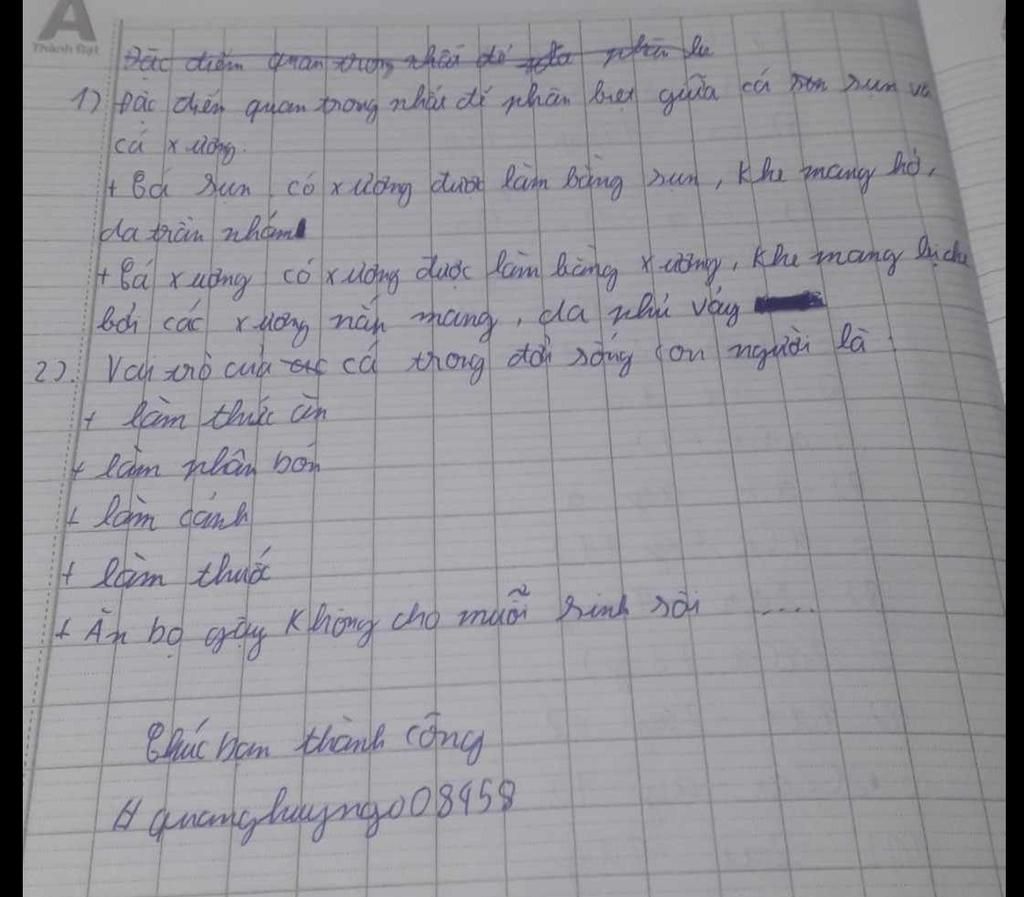 A
Thành Đạt
Đặc điểm quan trọng nhất để phân
1) Đặc điểm quan trọng nhất để phân biệt giữa cá sụn và
cá xương.
+ Cá sụn có xương được làm bằng sụn, khe mang hở,
da trần nhám
+ Cá xương có xương được làm bằng xương, khe mang
bởi các xương nắp mang, da phủ vảy
2). Vai trò của cá trong đời sống con người là:
+ làm thức ăn
+ làm phân bón
+ làm cảnh
+ làm thuốc
+ Ăn bọ gậy không cho muỗi sinh sôi ....
Chúc bạn thành công
# quanghuyngo08458